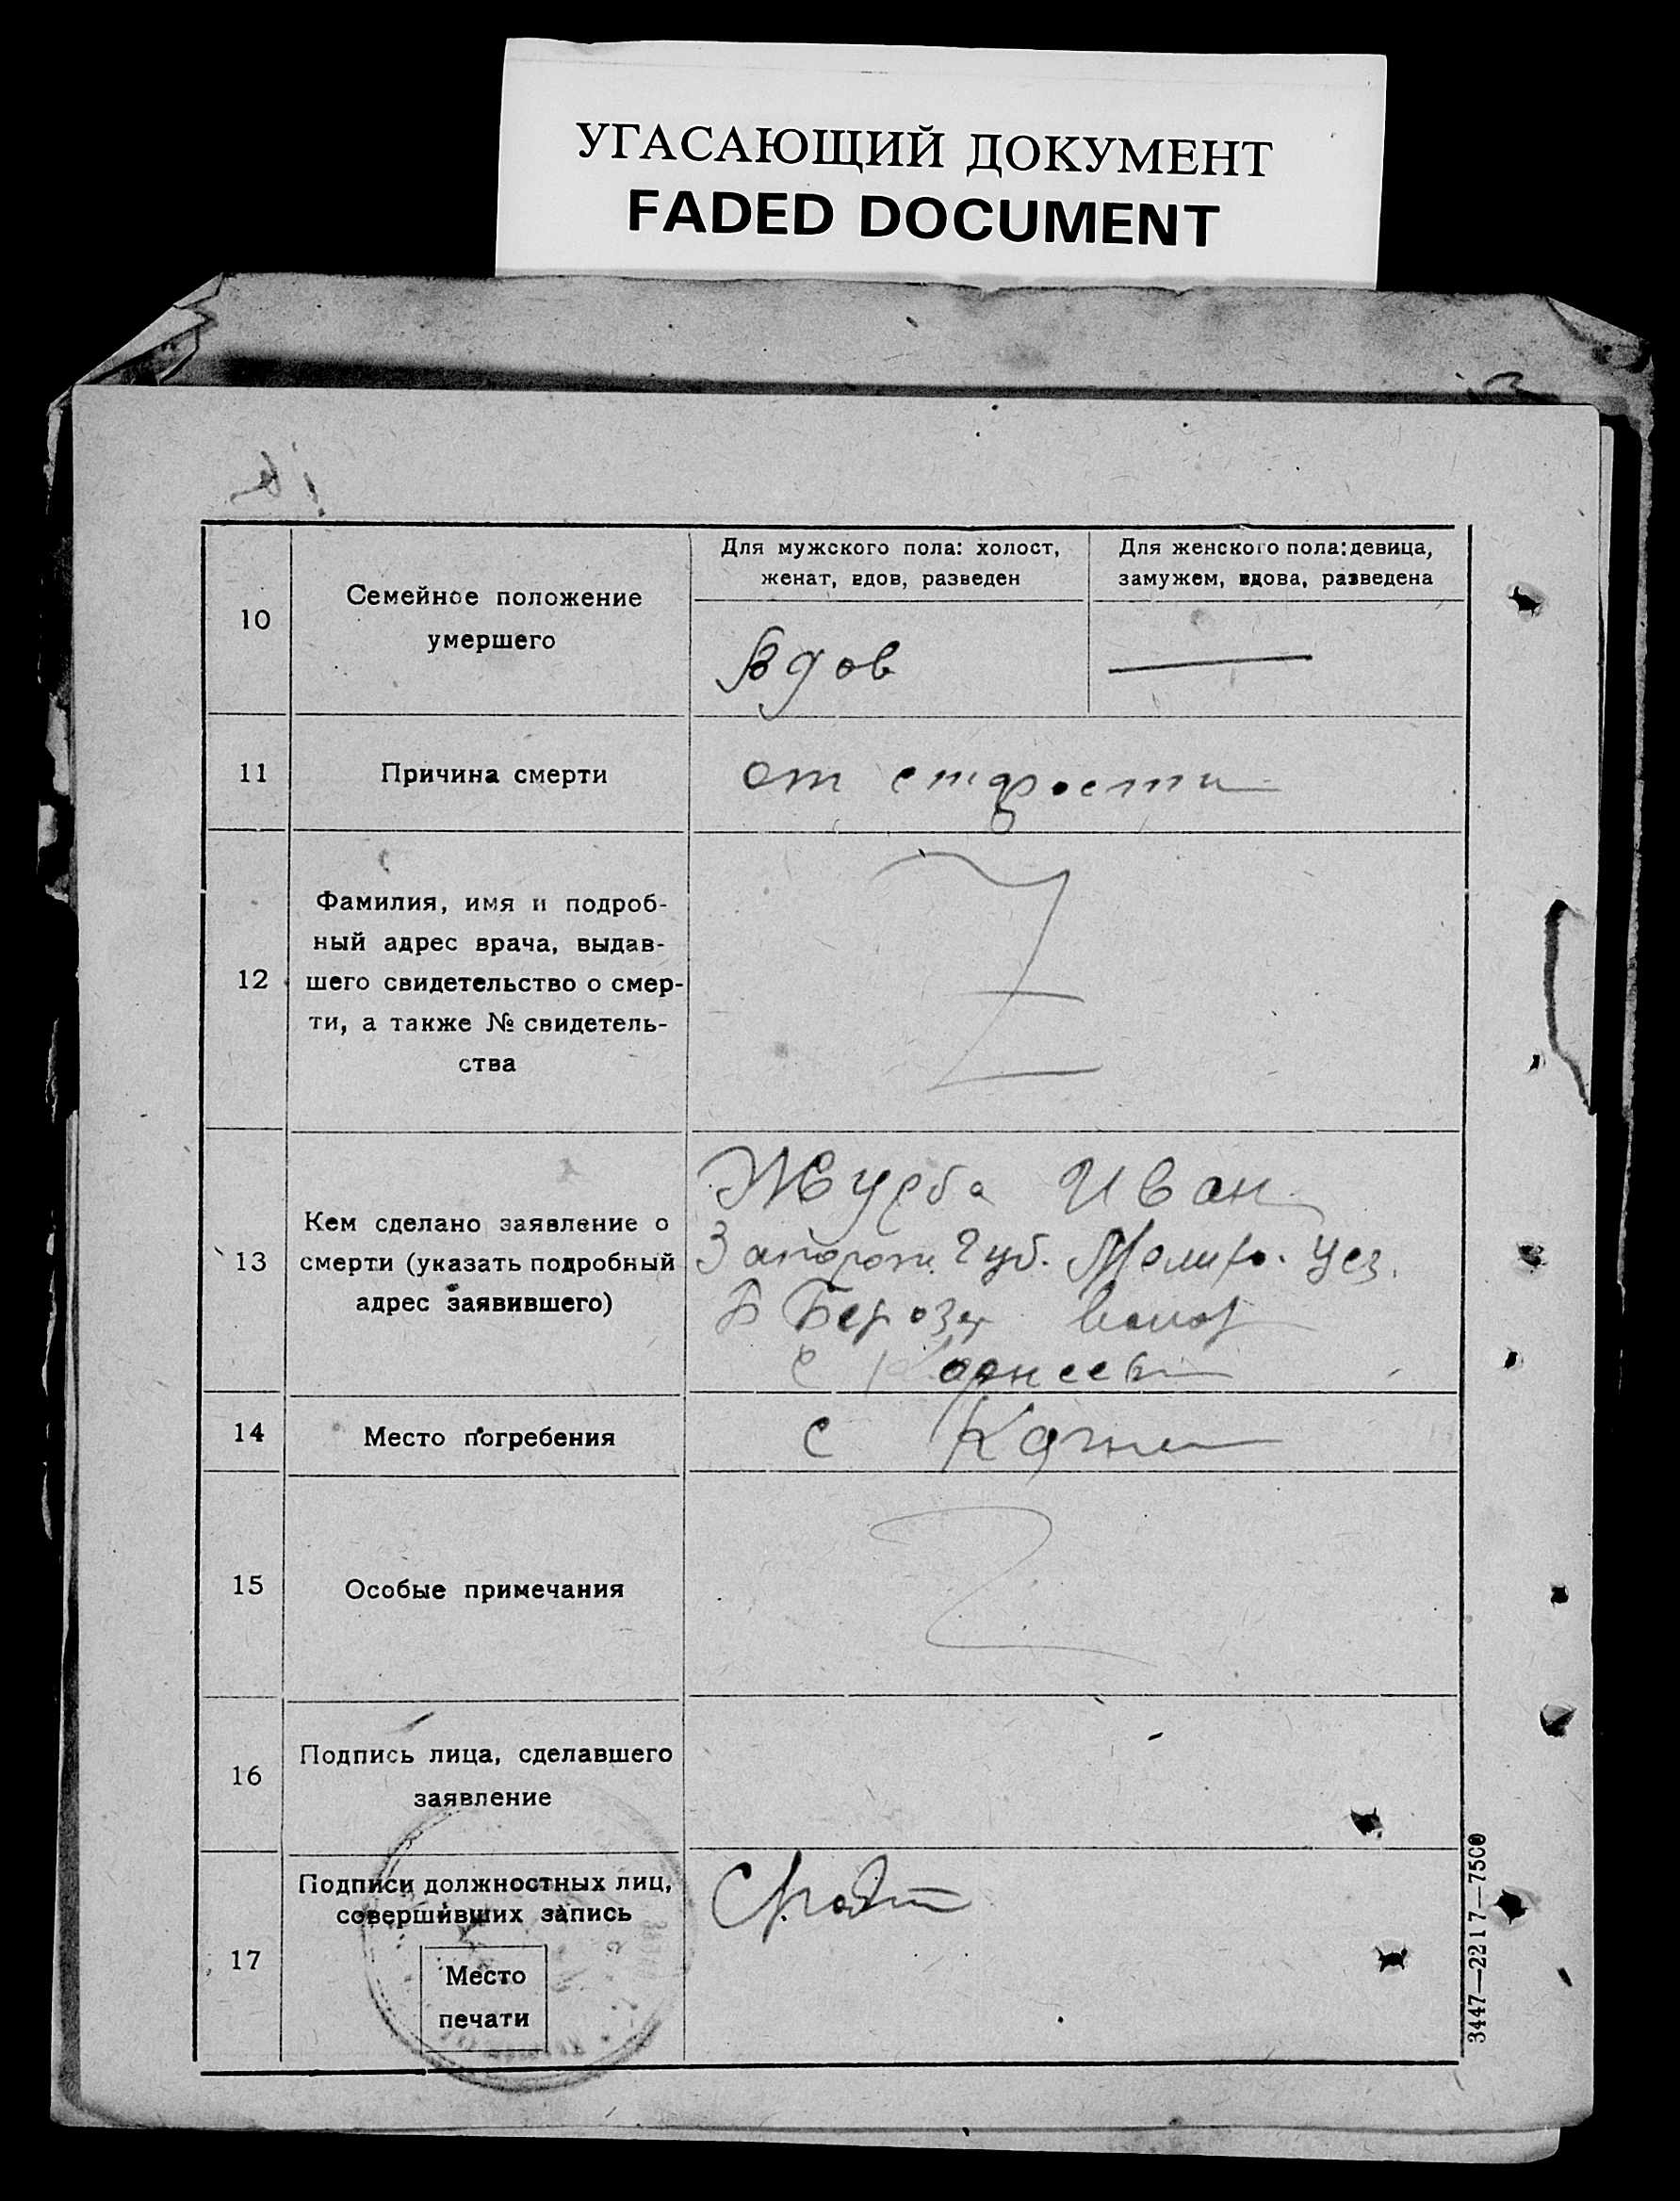 УГАСАЮЩИЙ ДОКУМЕНТ
FADED DOCUMENT
10
Семейное положение
умершего
Для мужского пола: холост,
женат, вдов, разведен
Для женского пола: девица,
замужем, вдова, разведена
Вдов
11
Причина смерти
от старости
12
Фамилия, имя и подроб-
ный адрес врача, выдав-
шего свидетельство о смер-
ти, а также № свидетель-
ства
13
Кем сделано заявление о
смерти (указать подробный
адрес заявившего)
Журба Иван
Запорож. Губ. Мелито. Уез.
Б Берозр волос
с Корнеев
14
Место погребения
с Корне
15
Особые примечания
16
Подпись лица, сделавшего
заявление
17
Подписи должностных лиц,
совершивших запись
Место
печати
3447—2217—7500